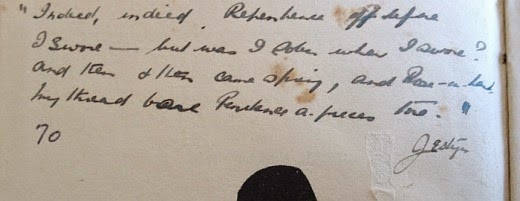 "Indeed, indeed, Repentance oft before
I swore — but was I sober when I swore?
and then & then came Spring, and Rose-in-hand
my thread bare Penitence a-pieces tore."
70
JEstyn